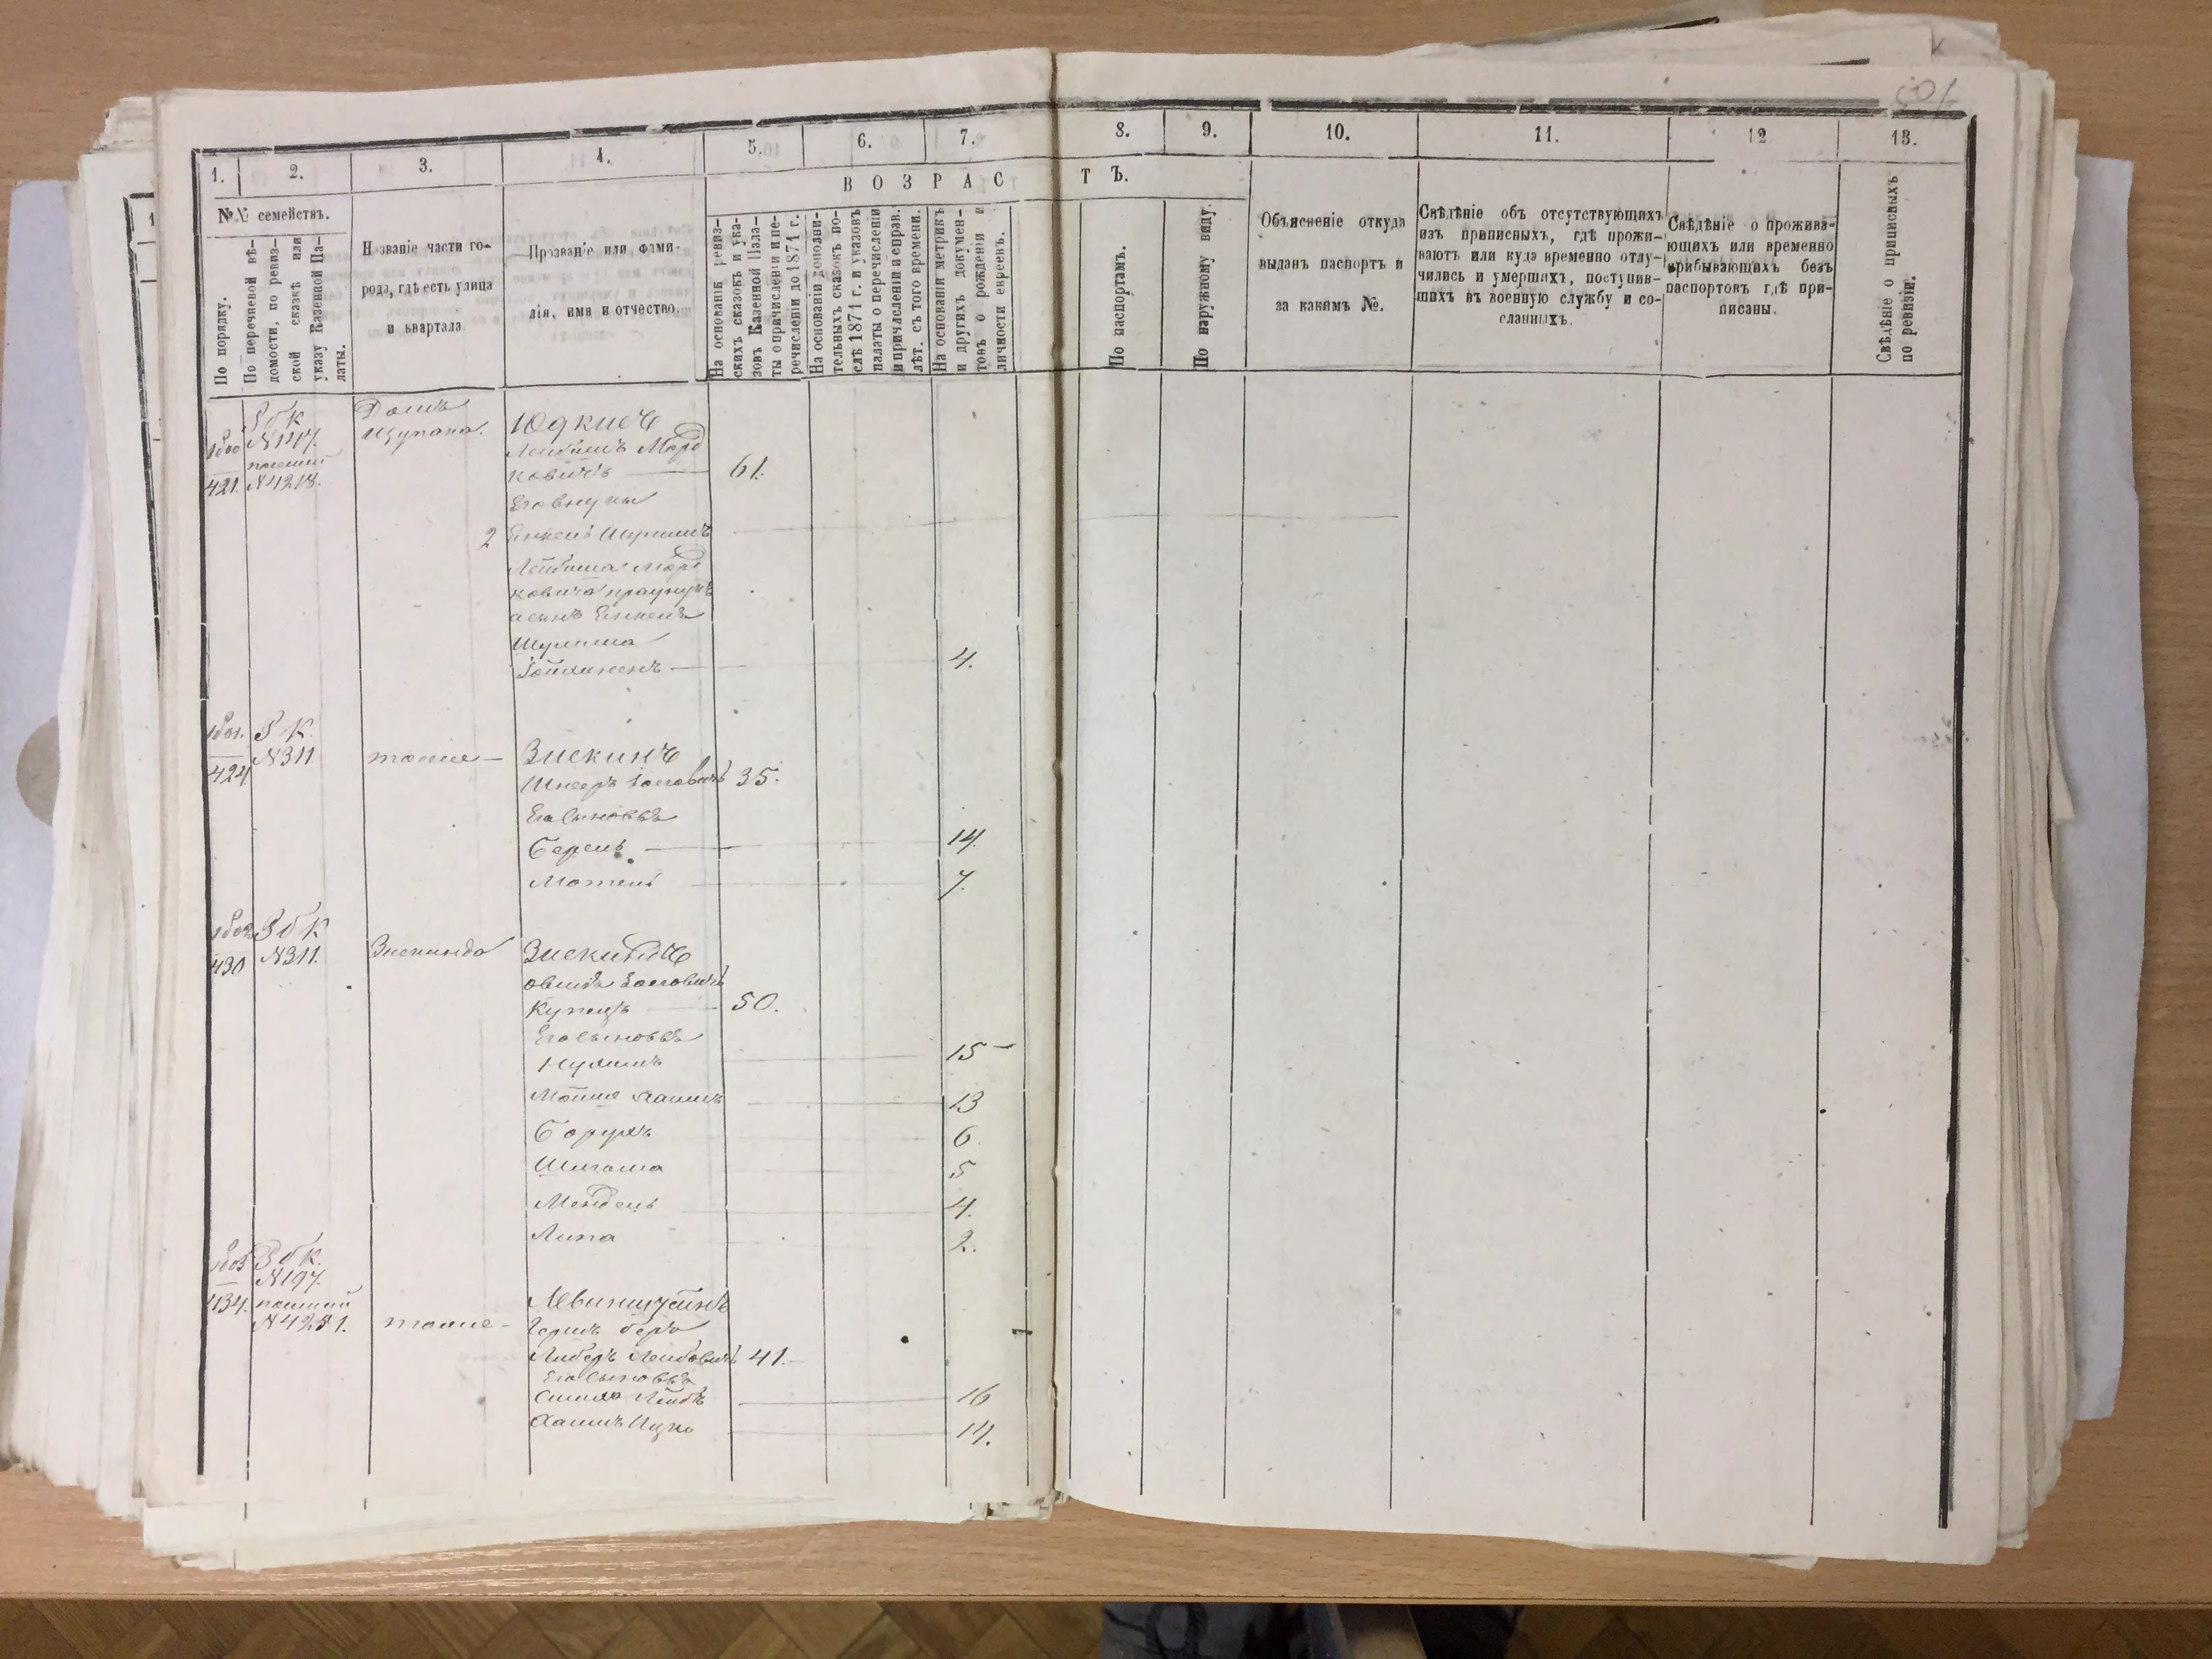 501
1. 2. 3. 4. 5. 6. 7. 8. 9. 10. 11. 12 13.
ВОЗРАСТЪ.
№№ семействъ.
По порядку.
По перечневой вѣ-
домости, по ревиз-
ской сказкѣ или
указу Казенной Па-
латы.
Названіе части го-
рода, гдѣ есть улица
и квартала
Прозваніе или фами-
лія, имя и отчество.
На основаніи ревиз-
скихъ сказокъ и ука-
зовъ Казенной Пала-
ты о причисленіи и пе-
речисленіи до 1871 г.
На основаніи дополни-
тельныхъ сказокъ по-
слѣ 1871 г. и указовъ
палаты о перечисленіи
и причисленіи и справ.
лѣт. съ того времени.
На основаніи метрикъ
и другихъ докумен-
товъ о рожденіи и
личности евреевъ.
По паспортамъ.
По наружному виду.
Объясненіе откуда
выданъ паспортъ и
за какимъ №.
Свѣдѣніе объ отсутствующихъ
изъ приписныхъ, гдѣ прожи-
ваютъ или куда временно отлу-
чились и умершихъ, поступив-
шихъ въ военную службу и со-
сланныхъ.
Свѣдѣніе о прожива-
ющихъ или временно
прибывающихъ безъ
паспортовъ гдѣ при-
писаны.
Свѣдѣніе о приписныхъ
по ревизіи.
Домъ
421.
N4218.
Лейбишъ Морд
ковичъ 61.
Его внуки
2
Лейбиша Морд
ковича правнукъ
а сынъ Янкеля
4.
З К.
424 N311 тоже Зискинъ
35.
Его сыновья
Берель 14.
Мотель 7.
З б К
430 N311. Зискинда Зискиндъ
Купецъ 50.
Его сыновья
Нухимъ 15
13
Борухъ 6
5
Мендель 4.
Липа 2.
З б К.
N197.
434. тоже
Герцъ Беръ
Либеръ Лейбовичъ 41.
Его сыновья
Симха Лейбъ 16
Хаимъ Ицко 14.